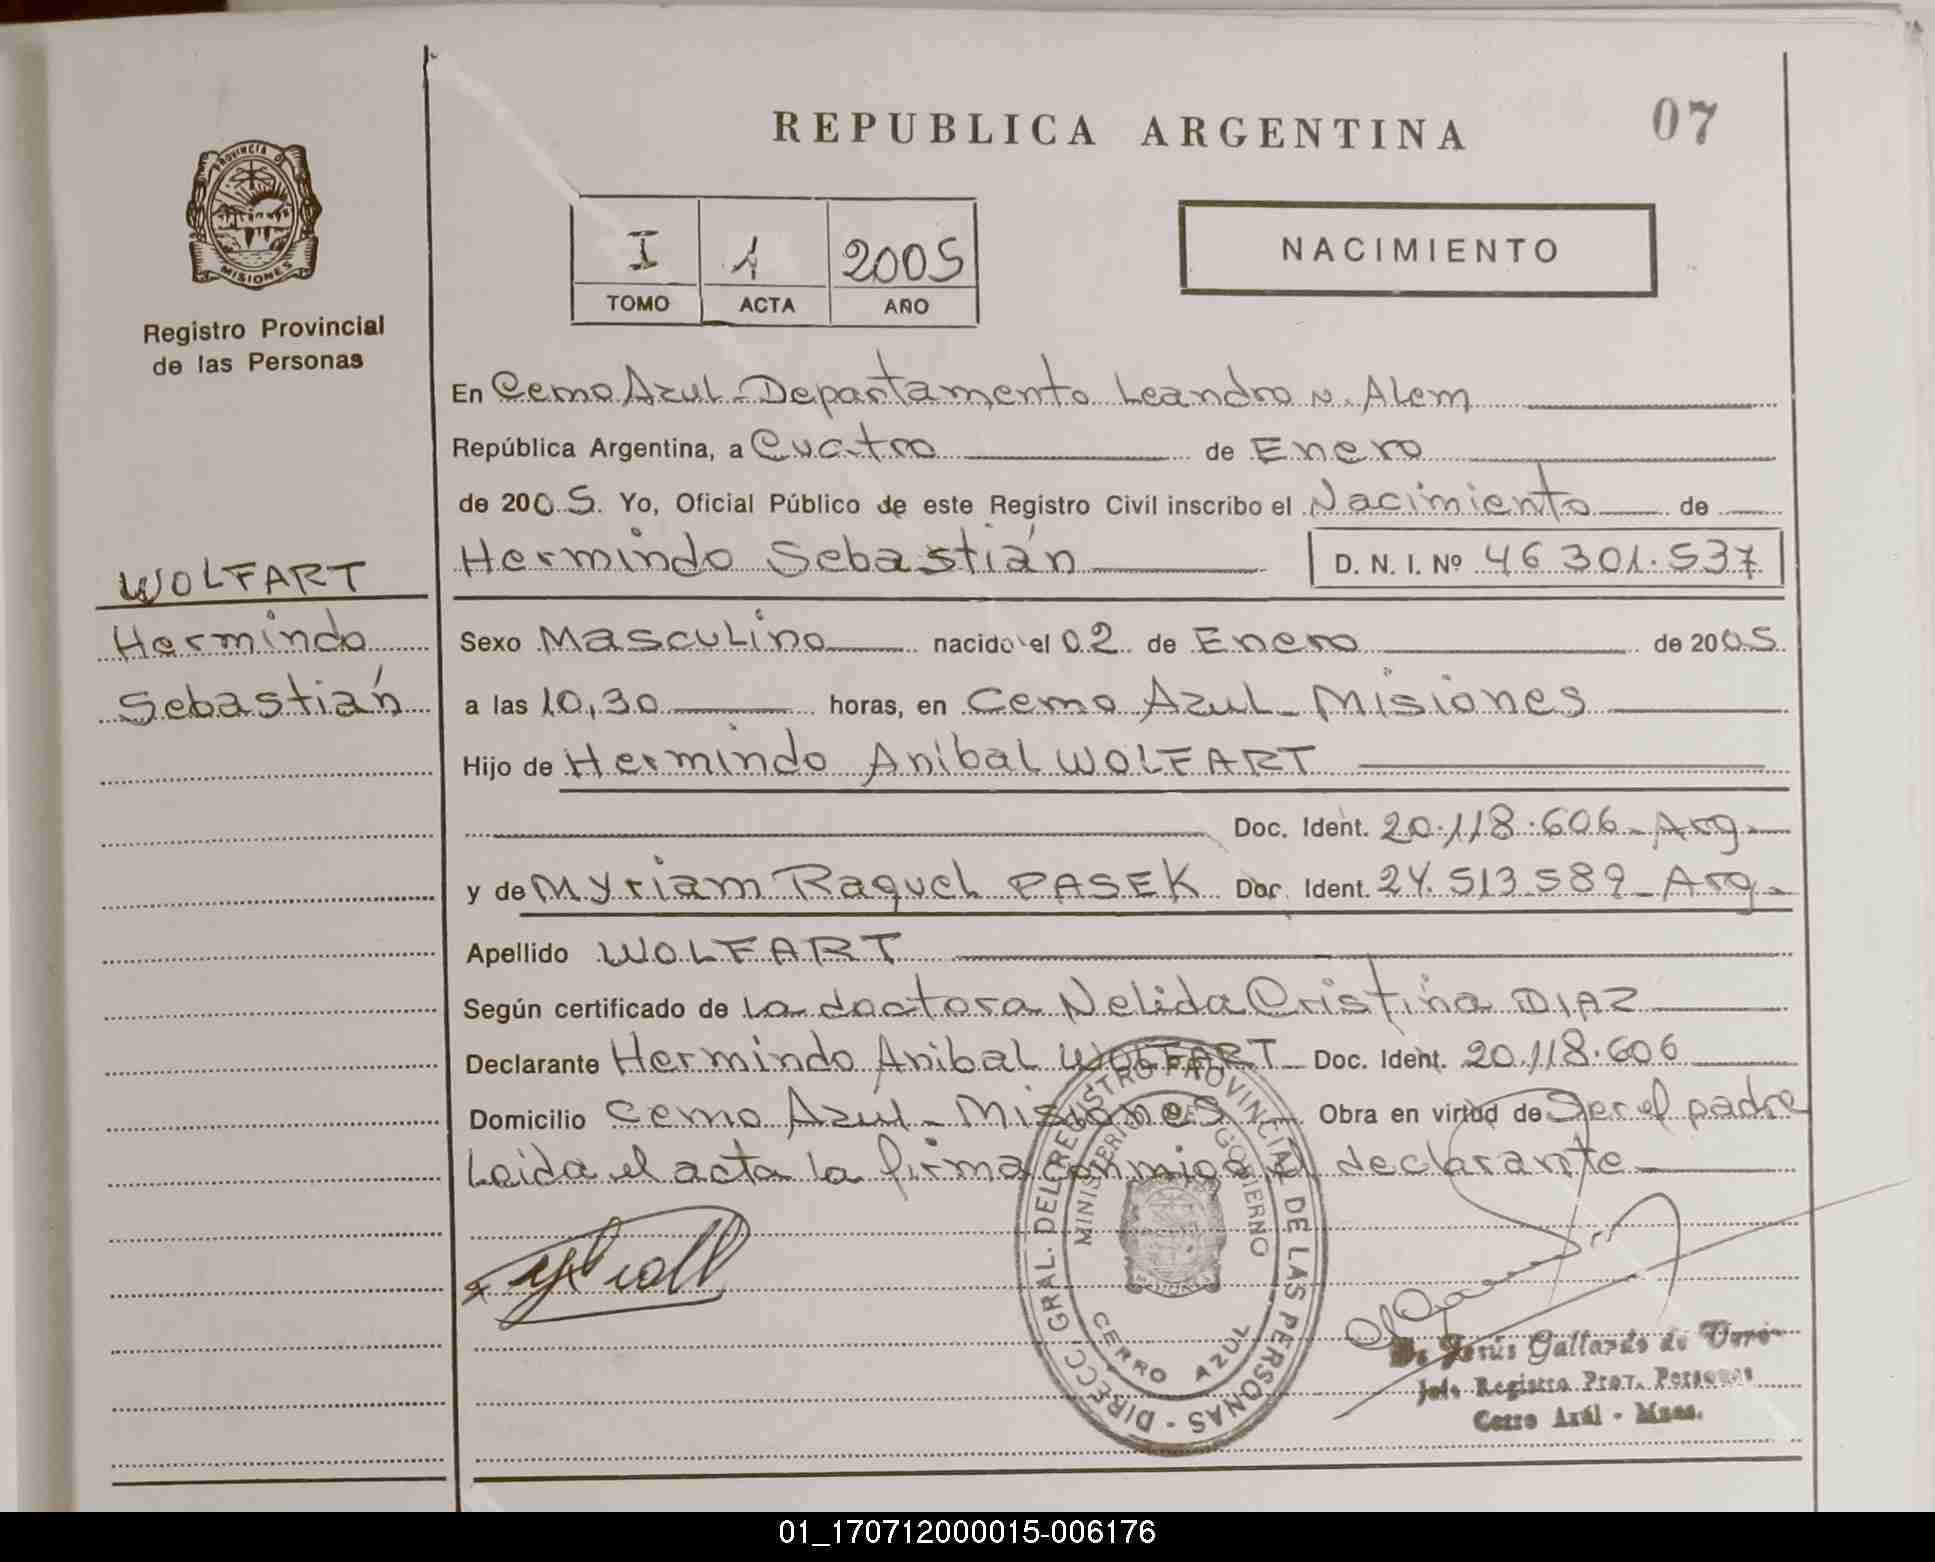 REPUBLICA ARGENTINA
07
PROVINCIA DE
MISIONES
Registro Provincial
de las Personas
I 1 2005
TOMO ACTA AÑO
NACIMIENTO
En Cerro Azul - Departamento Leandro N. Alem
República Argentina, a Cuatro de Enero
de 2005. Yo, Oficial Público de este Registro Civil inscribo el Nacimiento de
Hermindo Sebastián D. N. I. Nº 46 301.537
WOLFART
Hermindo
Sebastián
Sexo Masculino nacido el 02 de Enero de 2005
a las 10,30 horas, en Cerro Azul - Misiones
Hijo de Hermindo Anibal WOLFART
Doc. Ident. 20.118.606 - Arg.
y de Myriam Raquel PASEK Doc. Ident. 24.513.589 - Arg.
Apellido WOLFART
Según certificado de La doctora Nelida Cristina DIAZ
Declarante Hermindo Anibal WOLFART Doc. Ident. 20.118.606
Domicilio Cerro Azul - Misiones Obra en virtud de Ser el padre
Leida el acta la firma conmigo el declarante
DIRECC. GRAL. DEL REGISTRO PROVINCIAL DE LAS PERSONAS -
MINISTERIO DE GOBIERNO
CERRO AZUL
Jesús Gallardo de
Jefe Registro Prov. Personas
Cerro Azúl - Mnes.
01_170712000015-006176